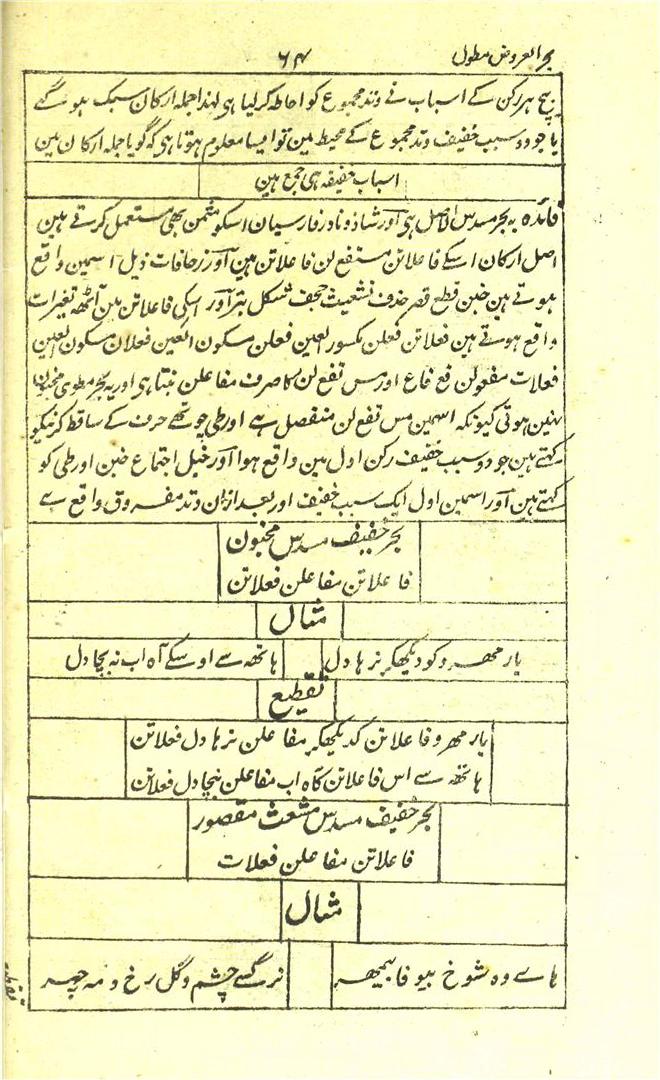 بحر العروض مطول ۶۴
بیچ ہر رکن کے اسباب نے وتد مجموع کو احاطہ کرلیا ہی لہذا جملہ ارکان سبک ہوگئے
یا جو دو سبب خفیف وتد مجموع کے محیط ہین تو ایسا معلوم ہوتا ہی کہ گویا جملہ ارکان مین
اسباب خفیفہ ہی جمع ہین
فائدہ یہ بحر مسدس الاصل ہی اور شاذ و نادر فارسیان اسکو مثمن بھی مستعمل کرتے ہین
اصل ارکان اسکے فاعلاتن مستفع لن فاعلاتن ہین اور زحافات ذیل اسمین واقع
ہوتے ہین خبن قطع قصر حذف تشعیث حجف شکل بتر اور اسکی فاعلاتن مین آٹھ تغیرات
واقع ہوتے ہین فعلاتن فعلن بکسور العین فعلن بسکون العین فعلان بسکون العین
فعلات مفعولن فع فاع اور مس تفع لن کا صرف مفاعلن بنتا ہی اور یہ بحر مطوی مخبون
نہین ہوتی کیونکہ اسمین مس تفع لن منفصل ہے اور طی چوتھے حرف کے ساقط کرنیکو
کہتے ہین جو دو سبب خفیف رکن اول مین واقع ہوا اور خبل اجتماع خبن اور طی کو
کہتے ہین اور اسمین اول ایک سبب خفیف اور بعد ازان وتد مفروق واقع ہے
بحر خفیف مسدس مخبون
فاعلاتن مفاعلن فعلاتن
مثال
یار مھرو کو دیکھکر نرہا دل ہاتھ سے اوسکے آہ اب نہ بچا دل
تقطیع
یار مھرو فاعلاتن کدیکھکر مفاعلن نرہا دل فعلاتن
ہاتھ سے اس فاعلاتن کآہ اب مفاعلن نبچا دل فعلاتن
بحر خفیف مسدس مشعث مقصور
فاعلاتن مفاعلن فعلات
مثال
ہاے وہ شوخ بیوفا بیمھر نرگسی چشم و گل رخ و مہ چہر
تقطیع